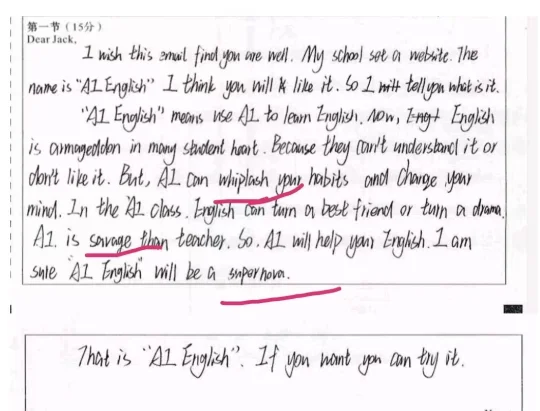 第一节（15分）
Dear Jack,
I wish this email find you are well. My school set a website. The
name is "AI English" I think you will like it. So I tell you what is it.
"AI English" means use AI to learn English. Now, English
is armageddon in many student heart. Because they can't understand it or
don't like it. But, AI can whiplash your habits and change your
mind. In the AI class. English can turn a best friend or turn a drama.
AI is savage than teacher. So. AI will help your English. I am
sure "AI English" will be a supernova.
That is "AI English". If you want you can try it.